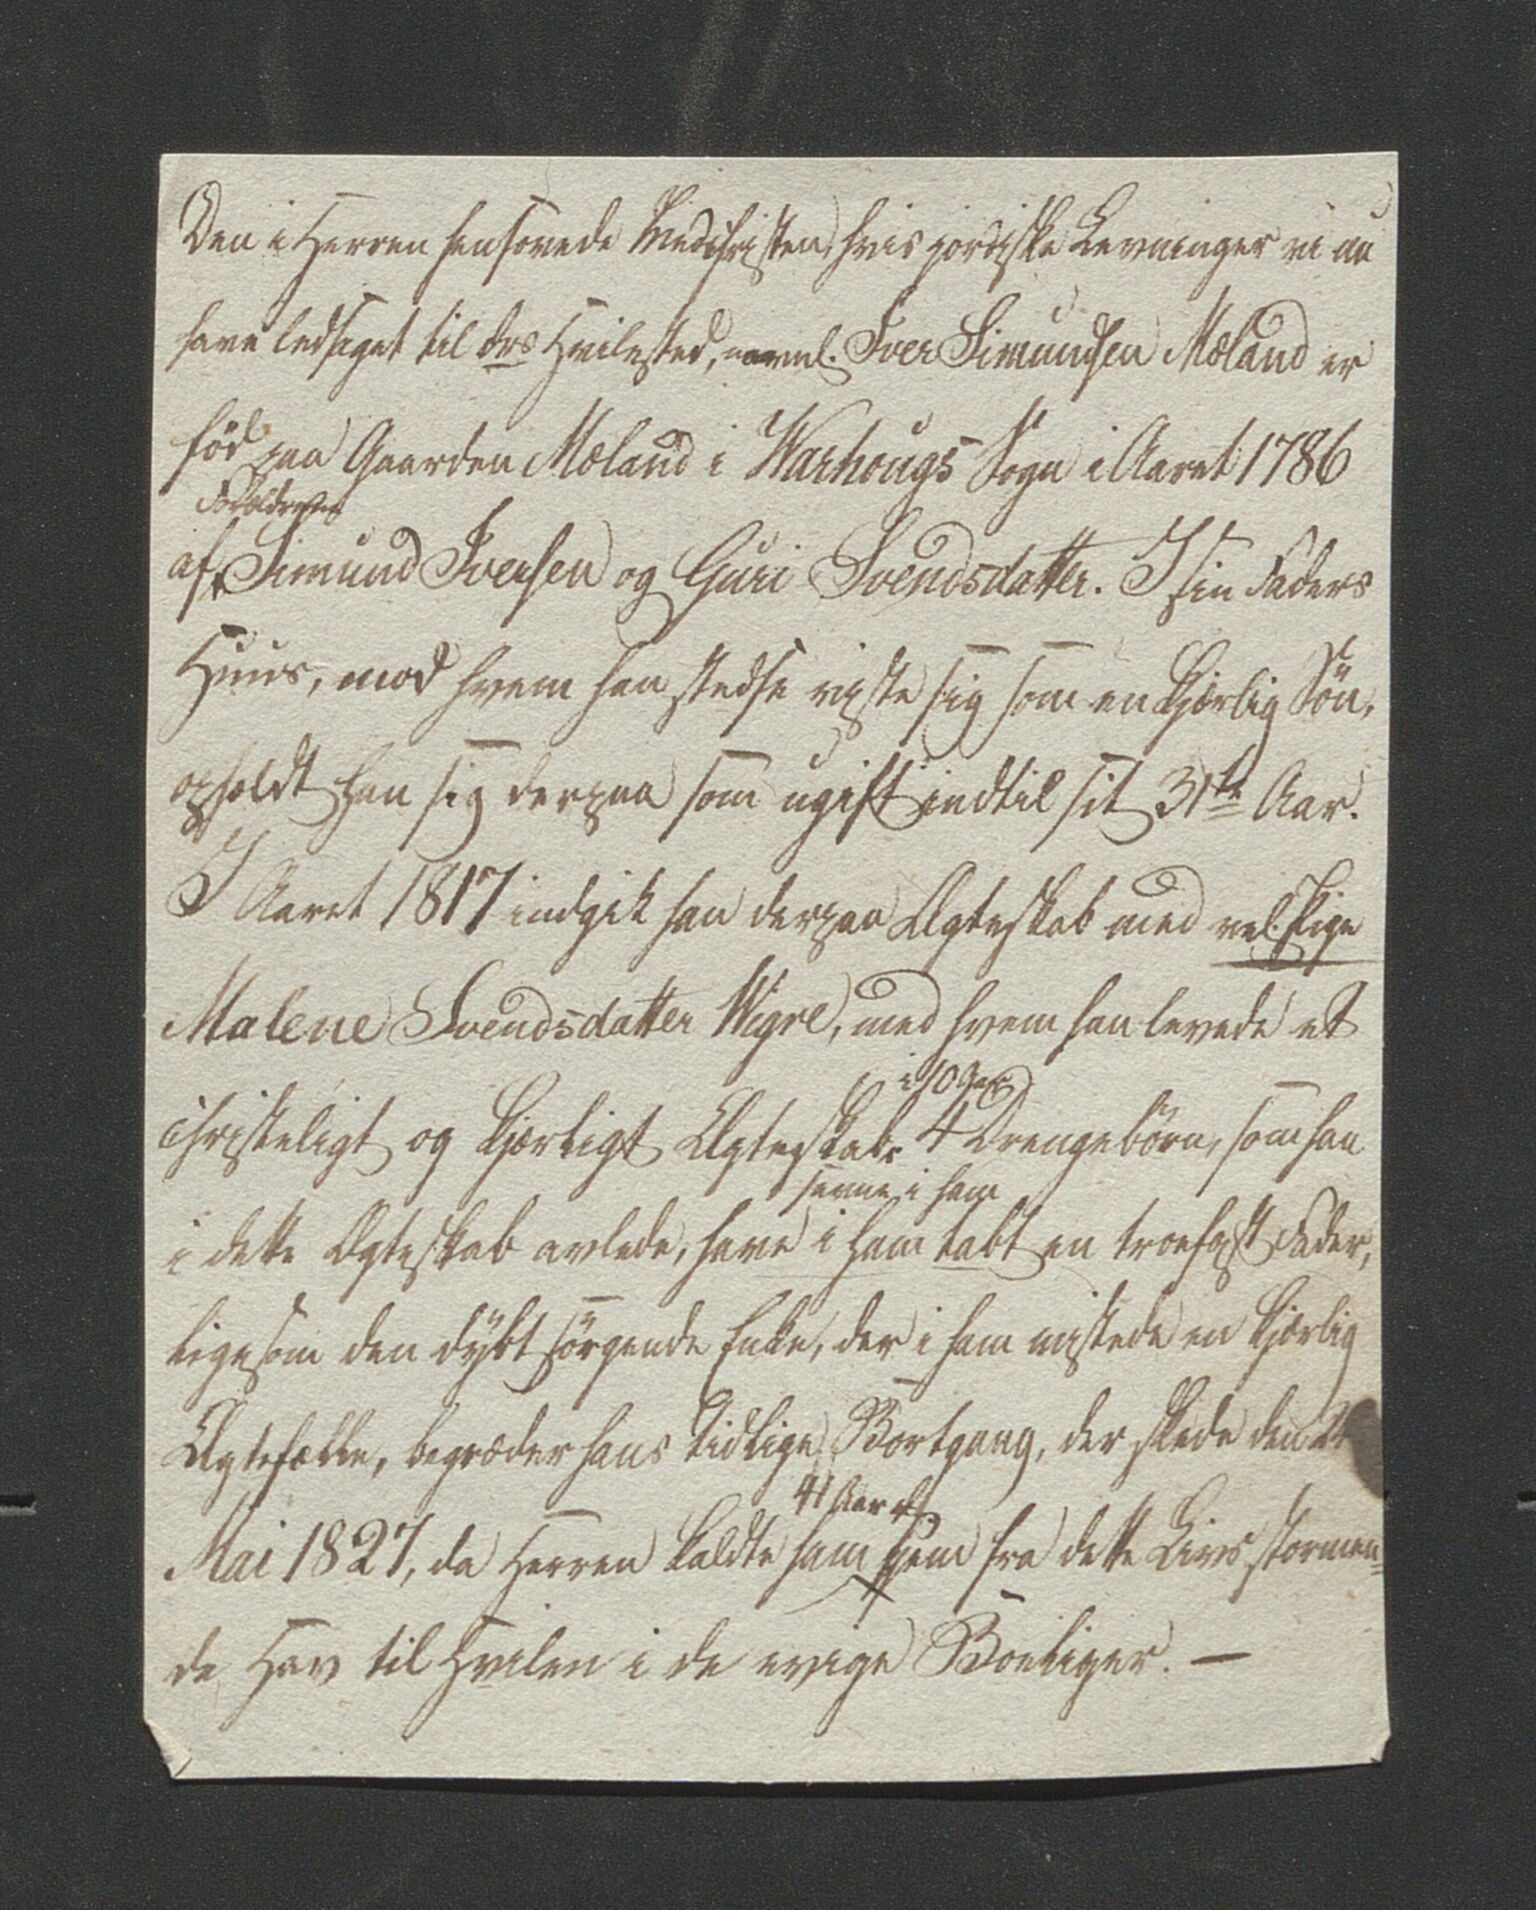 Den i Herren hensovede Medchristen, hvis jordiske Levninger vi nu
have ledsaget til dets Hvilested, navnl. Iver Simundsen Mæland er
född paa Gaarden Mæland i Warhougs Sogn i Aaret 1786
Forældrene
af Simund Iversen og Guri Svendsdatter. I sin Faders
Huus, mod hvem han stedse viiste sig som en kjærlig Sön,
opholdt han sig derpaa som ugift indtil sit 31te Aar.
I Aaret 1817 indgik han derpaa Ægteskab med vel. Pige
Malene Svendsdatter Wigre, med hvem han levede et
i 10 Aar
christeligt og kjærligt Ægteskab. 4 Drengebörn, som han
i ham
i dette Ægteskab avlede, have i ham tabt en troefast Fader,
ligesom den dybt sörgende Enke, der i ham mistede en kjærlig
Ægtefælle, begræder hans tidlige Bortgang, der skede den
41 Aar
Mai 1827, da Herren kaldte ham hjem fra dette Livs stormen-
de Hav til Hvilen i de evige Boeliger. —